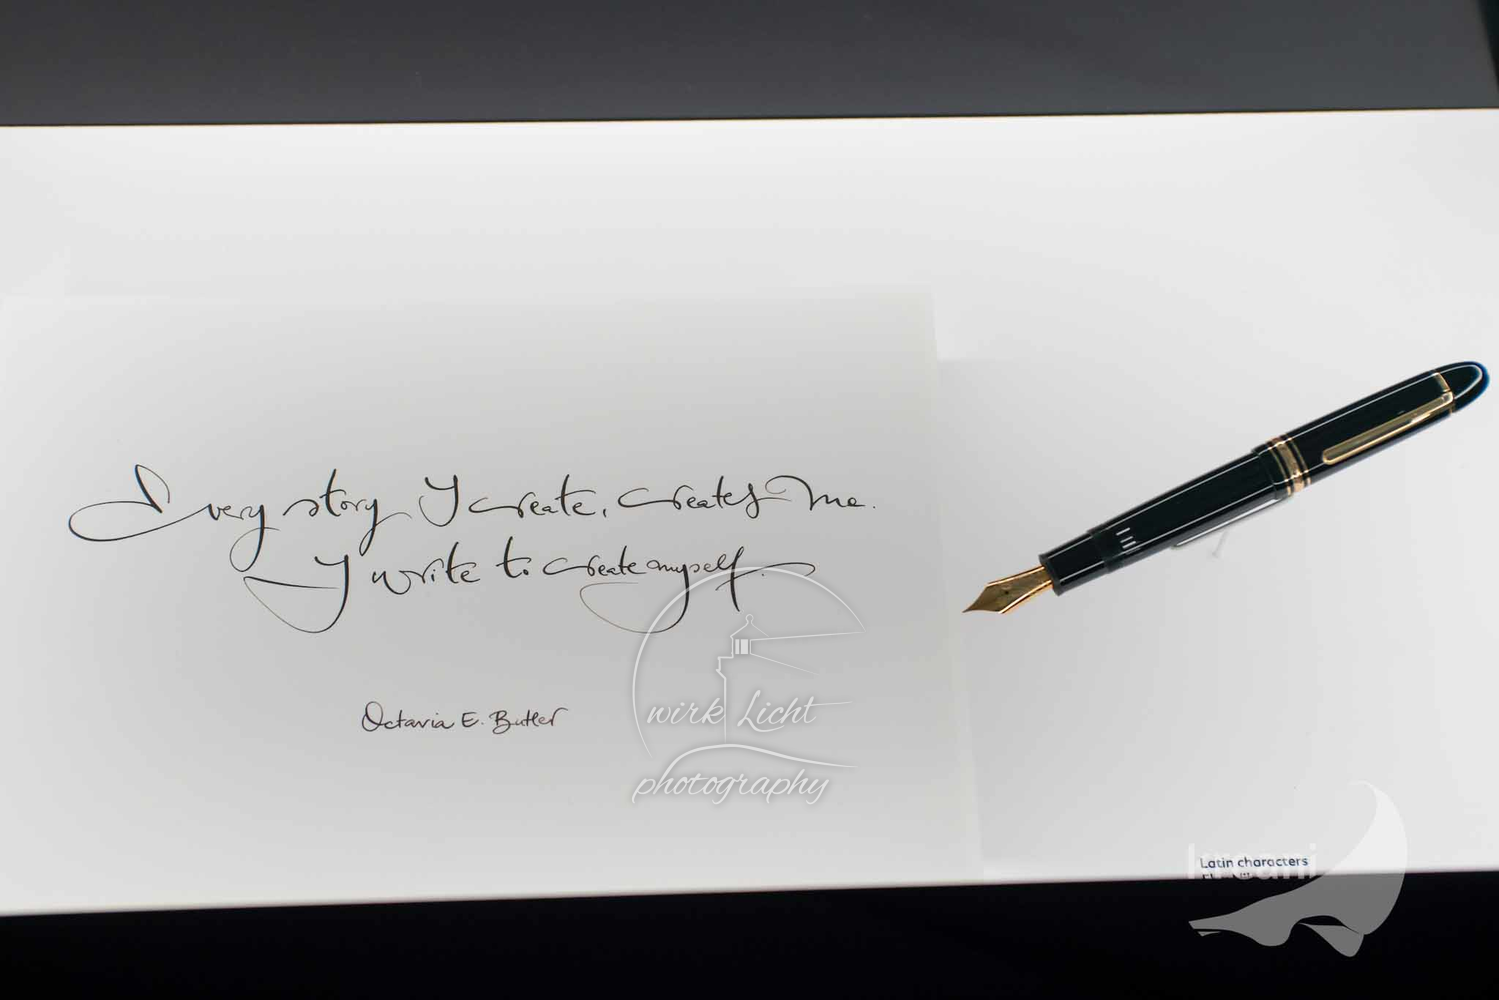 Every story I create, creates me.
I write to create myself.
Octavia E. Butler
wirk Licht
photography
Latin characters